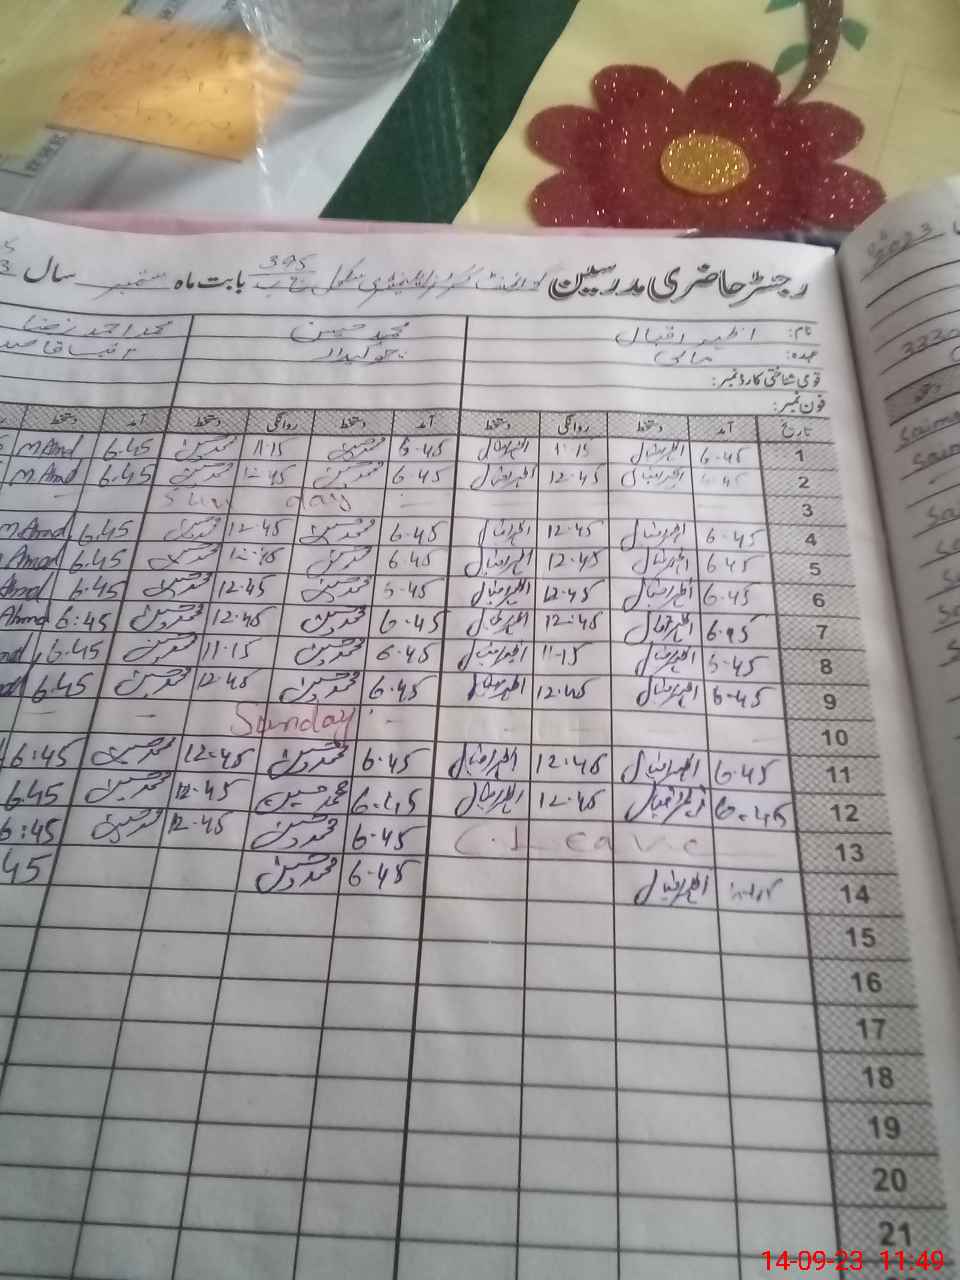 رجسٹر حاضری مدرسین گورنمنٹ گرلز ایلیمنٹری سکول 395 بابت ماہ ستمبر سال
نام: اظہر اقبال محمد حسین محمد احمد رضا
عہدہ: مالی چوکیدار
قومی شناختی کارڈ نمبر:
فون نمبر:
تاریخ آمد دستخط روانگی دستخط آمد دستخط روانگی دستخط آمد دستخط
1 6-45 اظہر اقبال 11-15 اظہر اقبال 6-45 محمد حسین 11-15 محمد حسین 6.45 M.Ahmd
2 6-45 اظہر اقبال 12-45 اظہر اقبال 6-45 محمد حسین 12-45 محمد حسین 6.45 M.Ahmd
3 Sun day
4 6-45 اظہر اقبال 12-45 اظہر اقبال 6-45 محمد حسین 12-45 محمد حسین 6.45 M.Ahmad
5 6-45 اظہر اقبال 12-45 اظہر اقبال 6-45 محمد حسین 12-45 محمد حسین 6.45 Ahmad
6 6-45 اظہر اقبال 12-45 اظہر اقبال 6-45 محمد حسین 12-45 محمد حسین 6.45 Ahmd
7 6-45 اظہر اقبال 12-45 اظہر اقبال 6-45 محمد حسین 12-45 محمد حسین 6:45 Ahmd
8 6-45 اظہر اقبال 11-15 اظہر اقبال 6-45 محمد حسین 11-15 محمد حسین 6.45
9 6-45 اظہر اقبال 12-45 اظہر اقبال 6-45 محمد حسین 12-45 محمد حسین 6.45
10 Sunday
11 6-45 اظہر اقبال 12-45 اظہر اقبال 6-45 محمد حسین 12-45 محمد حسین 6:45
12 6-45 اظہر اقبال 12-45 اظہر اقبال 6-45 محمد حسین 12-45 محمد حسین 6.45
13 C.Leave 6-45 محمد حسین 12-45 محمد حسین 6:45
14 اظہر اقبال 6-45 محمد حسین 45
15
16
17
18
19
20
21
14-09-23 11:49